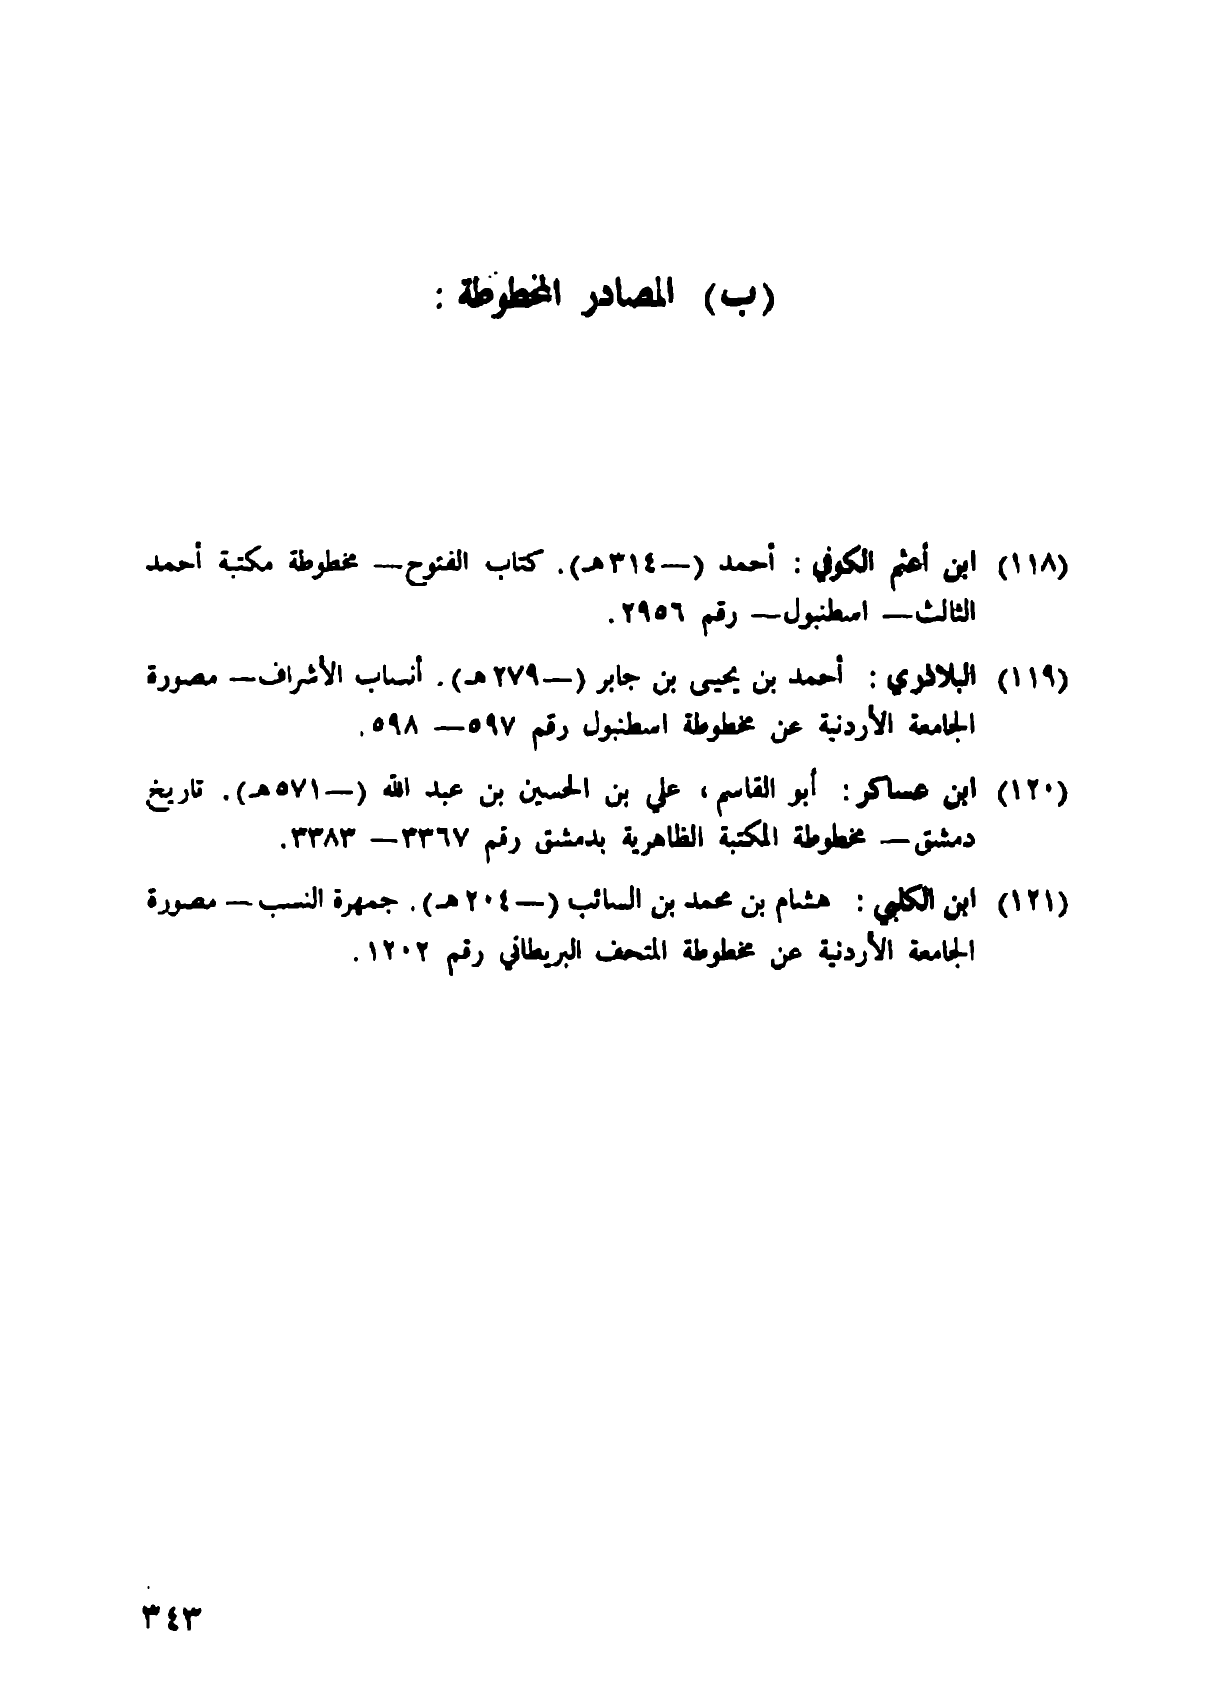 (ب) المصادر المخطوطة :
(١١٨) ابن أعثم الكوفي : أحمد (—٣١٤هـ). كتاب الفتوح— مخطوطة مكتبة أحمد
الثالث— اسطنبول— رقم ٢٩٥٦.
(١١٩) البلاذري : أحمد بن يحيى بن جابر (—٢٧٩هـ). أنساب الأشراف— مصورة
الجامعة الأردنية عن مخطوطة اسطنبول رقم ٥٩٧— ٥٩٨.
(١٢٠) ابن عساكر : أبو القاسم، علي بن الحسين بن عبد الله (—٥٧١هـ). تاريخ
دمشق— مخطوطة المكتبة الظاهرية بدمشق رقم ٣٣٦٧— ٣٣٨٣.
(١٢١) ابن الكلبي : هشام بن محمد بن السائب (—٢٠٤هـ). جمهرة النسب— مصورة
الجامعة الأردنية عن مخطوطة المتحف البريطاني رقم ١٢٠٢.
٣٤٣